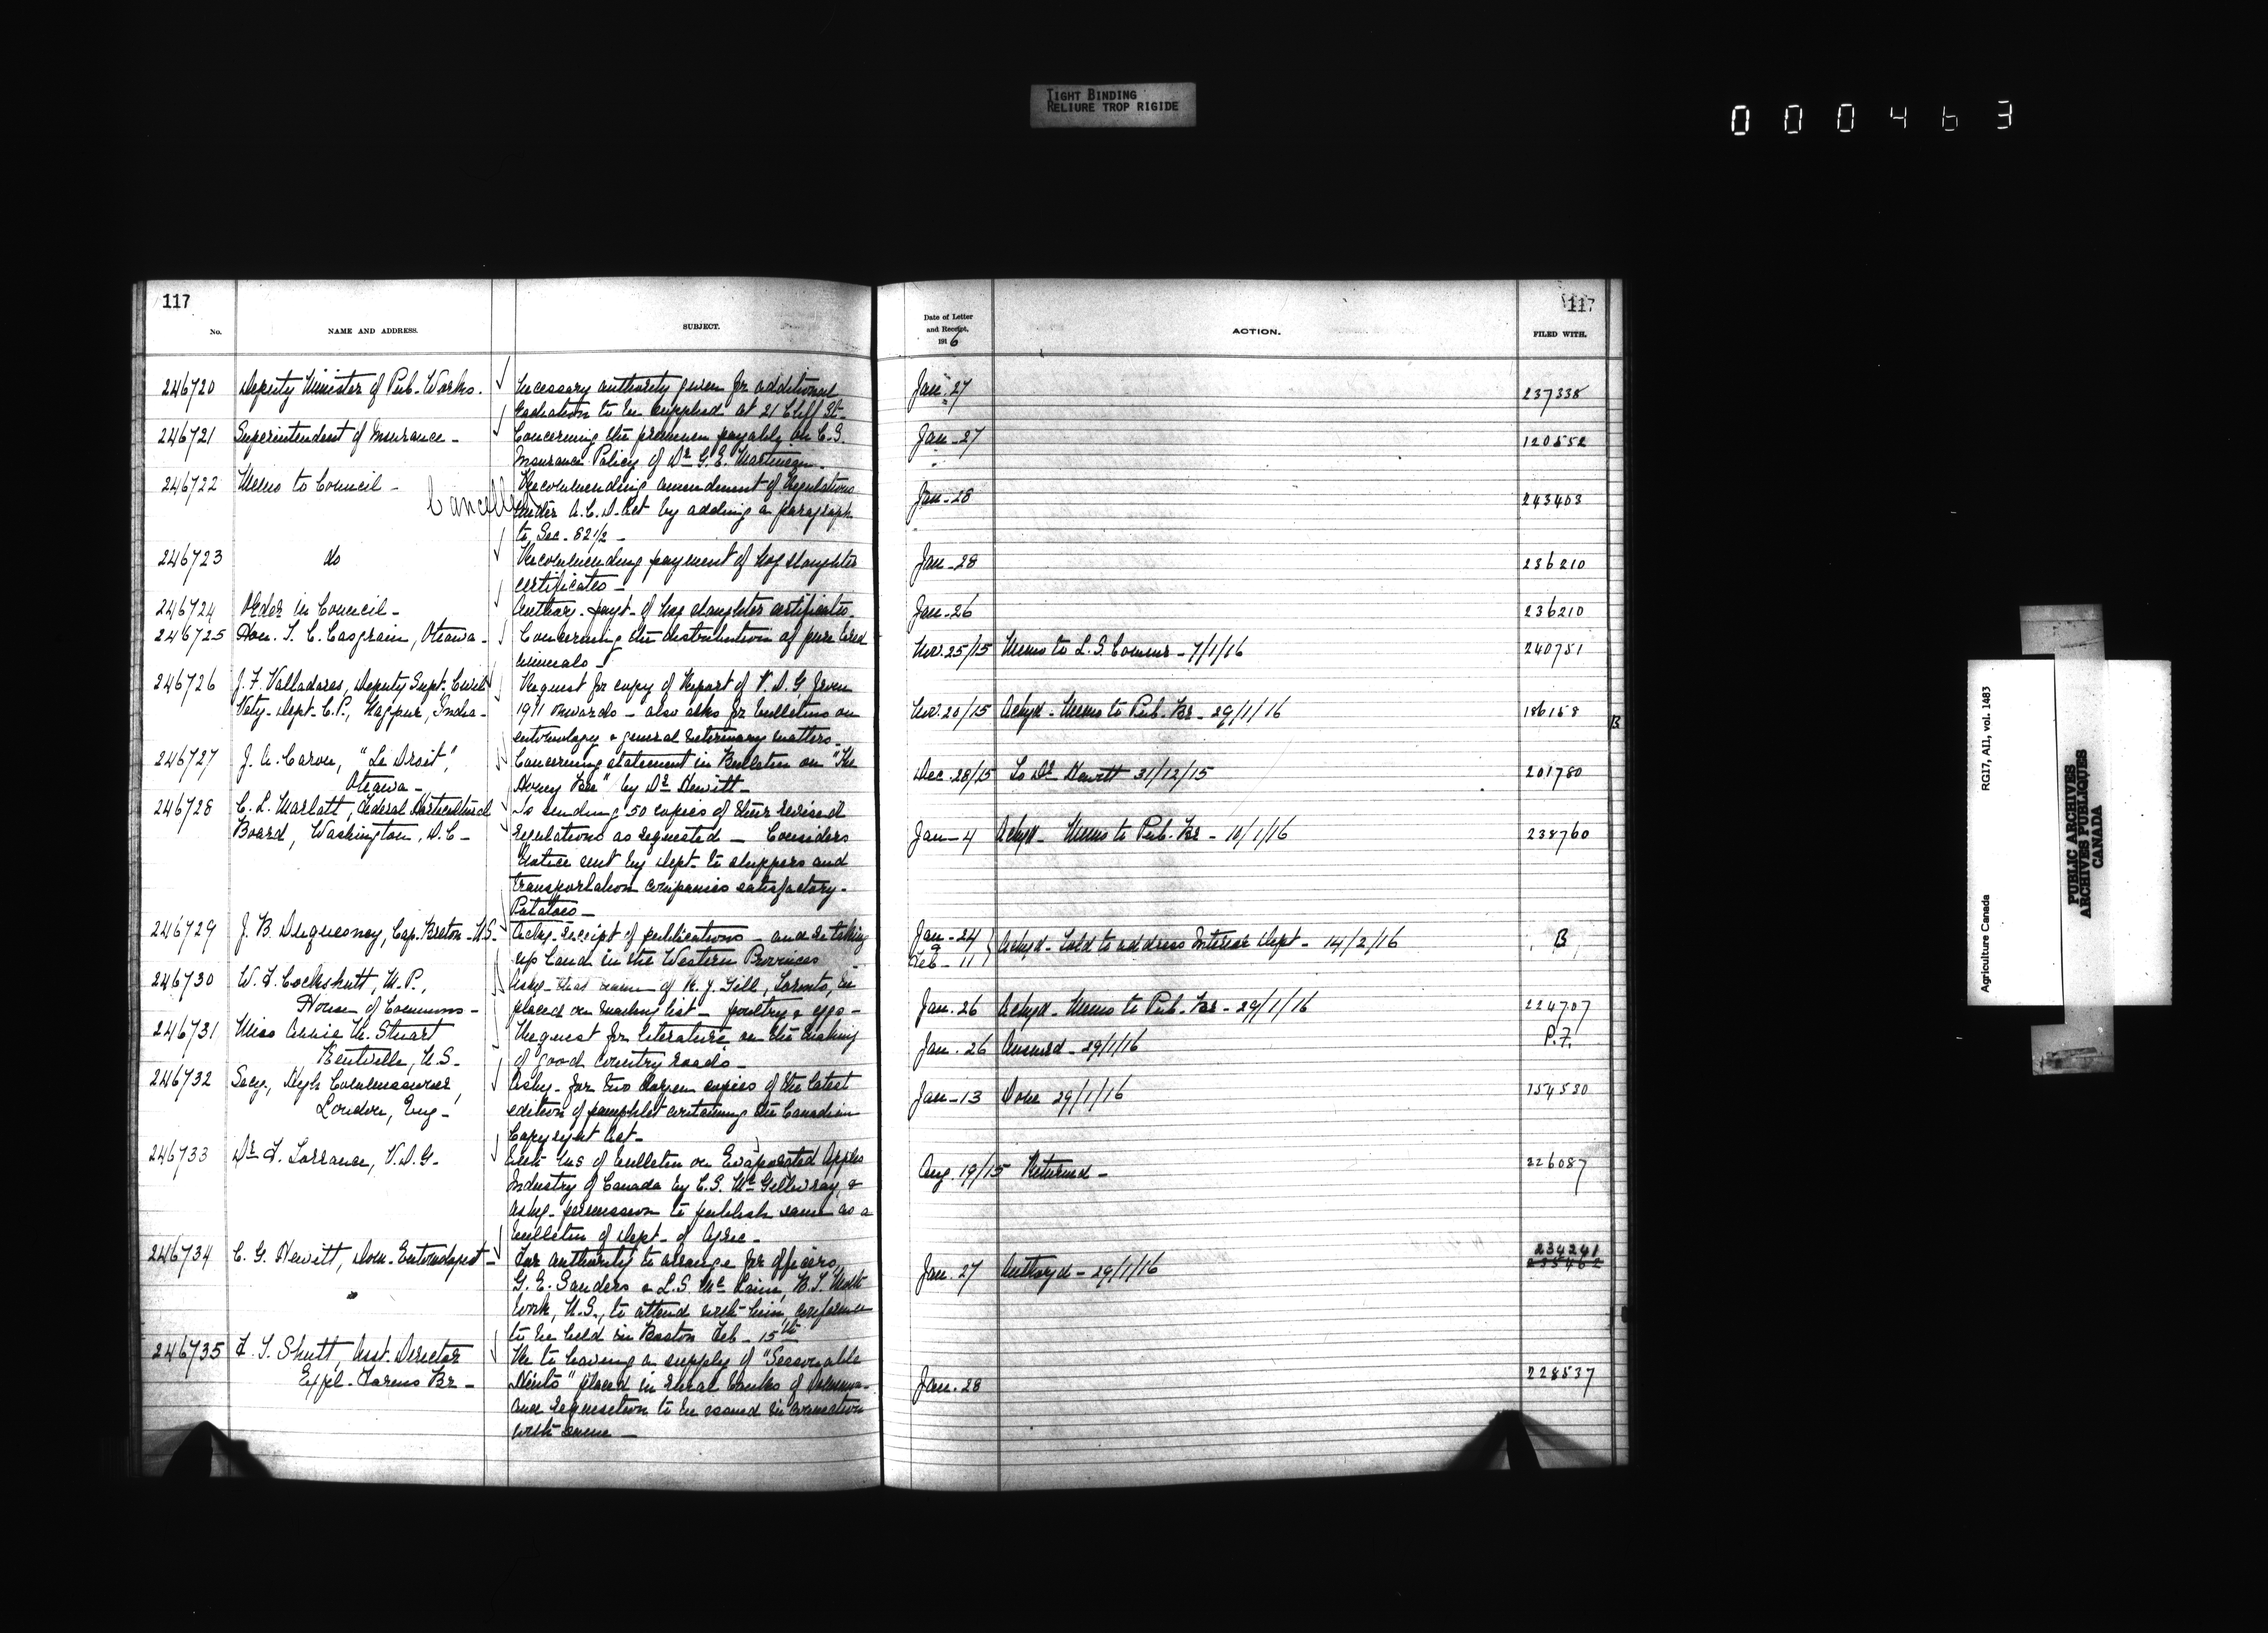 TIGHT BINDING
RELIURE TROP RIGIDE
000463
117
No. NAME AND ADDRESS. SUBJECT.
246720 Deputy Minister of Pub. Works. Necessary authority given for additional
radiation to be supplied at 21 Cliff St.
246721 Superintendent of Insurance - Concerning the premium payable on C.S.
Insurance Policy of Dr G. E. Martineau.
246722 Memo to Council - Recommending amendment of Regulations
Cancelled under A.C.D. Act by adding a paragraph
to Sec. 82 1/2 -
246723 do Recommending payment of hog slaughter
certificates -
246724 Order in Council - Author. payt. of hog slaughter certificates.
246725 Hon. T. C. Casgrain, Ottawa - Concerning the distribution of pure bred
animals -
246726 J. F. Valladares, Deputy Supt. Civil Request for copy of Report of V. D. G. from
Vety. Dept. C.P., Nagpur, India - 1911 onwards - also asks for bulletins on
entomology & general veterinary matters -
246727 J. A. Caron, "Le Droit", Concerning statement in Bulletin on "The
Ottawa - Honey Bee" by Dr Hewitt -
246728 C. L. Marlatt, Federal Horticultural Is sending 50 copies of their revised
Board, Washington, D.C - regulations as requested - Considers
notice sent by Dept. to shippers and
transportation companies satisfactory -
Potatoes -
246729 J. B. Duquesnay, Cap. Breton - N.S. Ackg. receipt of publications - and re taking
up land in the Western Provinces
246730 W. F. Cockshutt, M.P., Askg. that name of R. J. Gill, Toronto, be
House of Commons - placed on mailing list - poultry & eggs -
246731 Miss Annie M. Stuart Request for literature on the making
Kentville, N.S. of good country roads -
246732 Secy, High Commissioner, Askg. for two dozen copies of the latest
London, Eng - edition of pamphlet containing the Canadian
Copyright Act -
246733 Dr F. Torrance, V.D.G. Encl. MS of bulletin on Evaporated Apples
Industry of Canada by C.S. McGillivray, &
askg. permission to publish same as a
bulletin of Dept. of Agric -
246734 C. G. Hewitt, Dom. Entomologist - For authority to arrange for officers,
G. E. Sanders & L. S. McLaine, B.T. Moth
Work, N.S., to attend with him, conference
to be held in Boston Feb - 15th
246735 F. T. Shutt, Asst. Director Re to having a supply of "Seasonable
Expl. Farms Br - Hints" placed in rural banks of
and requisition to be issued in connection
with same -
117
Date of Letter
and Receipt,
1916
ACTION. FILED WITH.
Jan. 27 237338
Jan - 27 120552
Jan - 28 243403
Jan - 28 236210
Jan - 26 236210
Nov. 25/15 Memo to L. S. Commr - 7/1/16 240751
Nov. 20/15 Ackgd - Memo to Pub. Br - 29/1/16 186158 B
Dec. 28/15 To Dr Hewitt 31/12/15 201780
Jan - 4 Ackgd - Memo to Pub. Br - 10/1/16 238760
Jan - 24 Ackgd - Told to address Interior Dept - 14/2/16 B
Feb - 11
Jan. 26 Ackgd - Memo to Pub. Br - 29/1/16 224707
Jan. 26 Answrd - 29/1/16 P.F.
Jan - 13 Done 29/1/16 154530
Aug. 19/15 Returned - 226087
234241
Jan. 27 Authorzd - 29/1/16 235462
Jan. 28 228537
Agriculture Canada RG17, AII, vol. 1483
PUBLIC ARCHIVES
ARCHIVES PUBLIQUES
CANADA